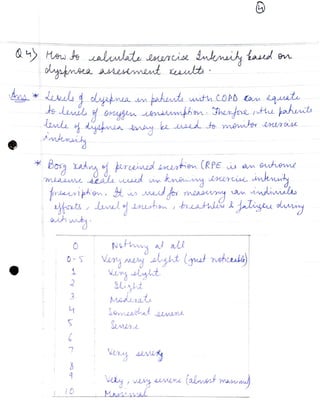 4
Q4) How to calculate exercise Intensity based on
dyspnoea assessment results.
Ans * Levels of dyspnea in patients with COPD can equate
to levels of oxygen consumption. Therefore, the patients
levels of dyspnea may be used to monitor exercise
intensity
* Borg rating of perceived exertion (RPE is an outcome
measure scale used in knowing exercise intensity
prescription. It is used for measuring an individuals
efforts, level of exertion, breathless & fatigue during
activity.
0 Nothing at all
0-5 Very very slight (just noticeable)
1 Very slight
2 Slight
3 Moderate
4 Somewhat severe
5 Severe
6
7 Very severe
8
9 Very, very severe (almost maximal)
10 Maximal